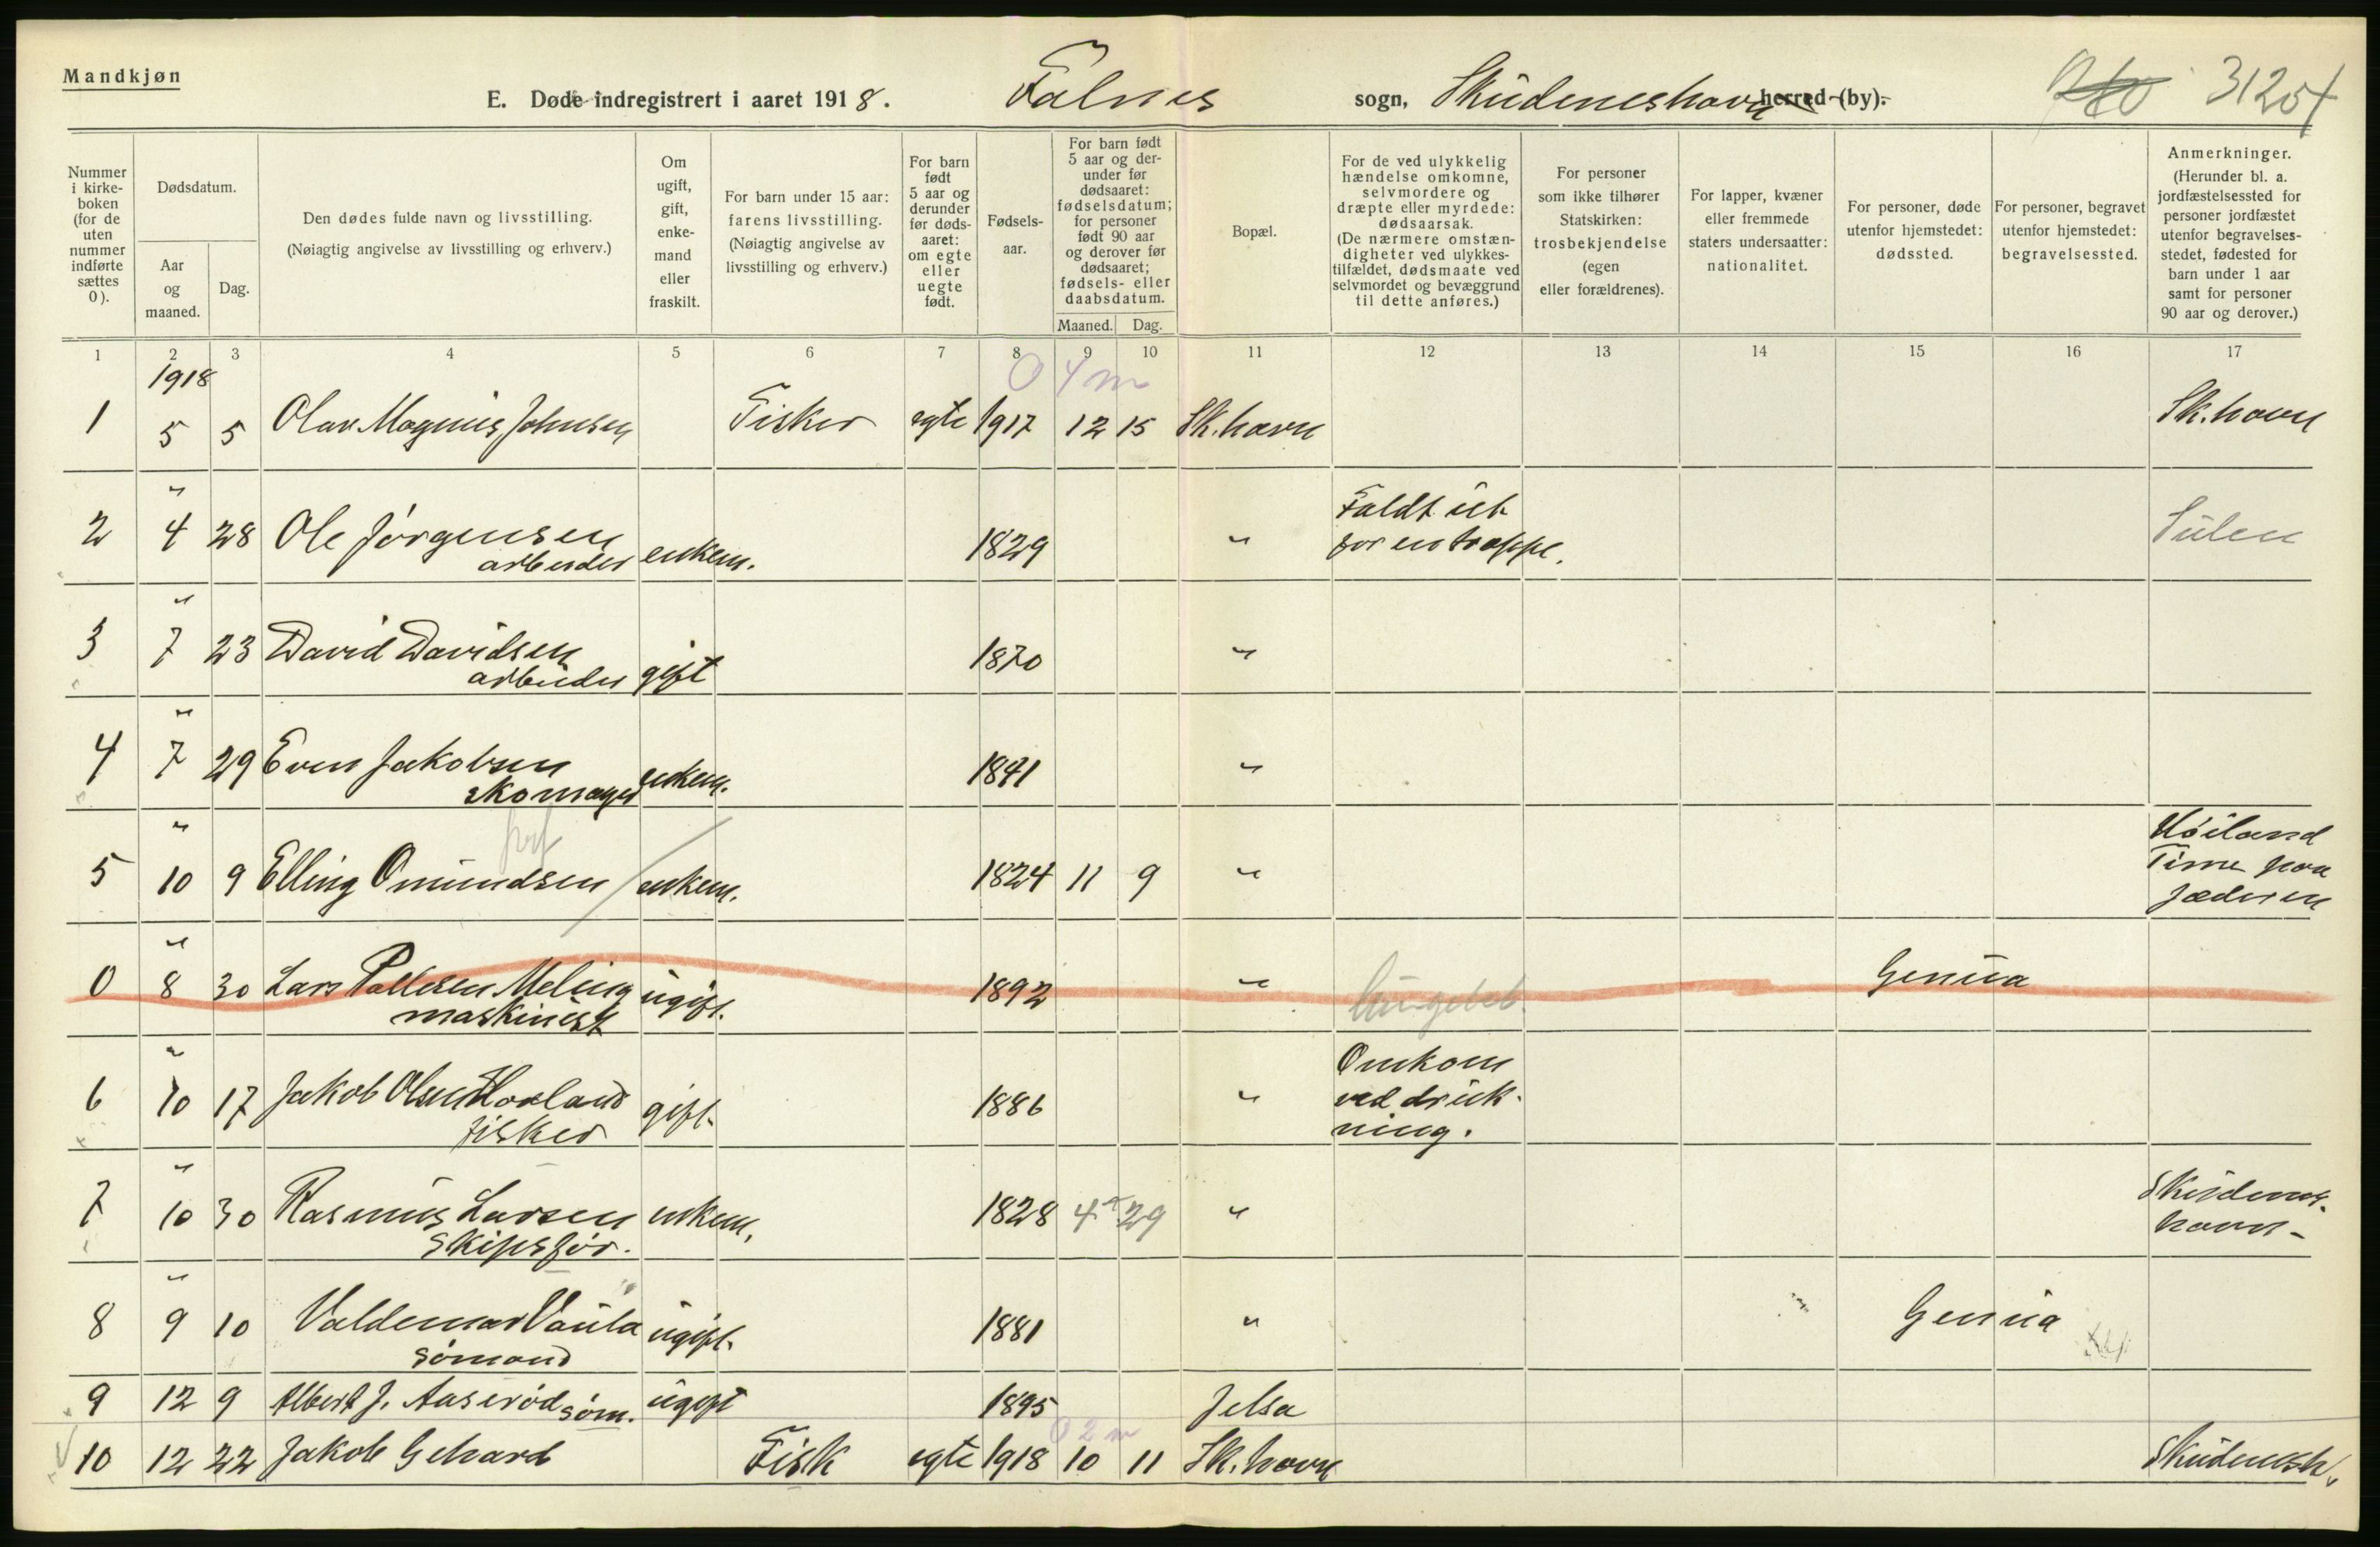 Mandkjøn
E. Døde indregistrert i aaret 1918. Falnes sogn, Skudeneshavn herred (by). 31204
Nummer i kirkeboken (for de uten nummer indførte sættes 0).
Dødsdatum.
Aar og maaned.
Dag.
Den dødes fulde navn og livsstilling.
(Nøiagtig angivelse av livsstilling og erhverv.)
Om ugift, gift, enkemand eller fraskilt.
For barn under 15 aar: farens livsstilling. (Nøiagtig angivelse av livsstilling og erhverv.)
For barn født 5 aar og derunder før dødsaaret: om egte eller uegte født.
Fødselsaar.
For barn født 5 aar og derunder før dødsaaret: fødselsdatum; for personer født 90 aar og derover før dødsaaret; fødsels- eller daabsdatum.
Maaned. Dag.
Bopæl.
For de ved ulykkelig hændelse omkomne, selvmordere og dræpte eller myrdede: dødsaarsak. (De nærmere omstændigheter ved ulykkestilfældet, dødsmaate ved selvmordet og bevæggrund til dette anføres.)
For personer som ikke tilhører Statskirken: trosbekjendelse (egen eller forældrenes).
For lapper, kvæner eller fremmede staters undersaatter: nationalitet.
For personer, døde utenfor hjemstedet: dødssted.
For personer, begravet utenfor hjemstedet: begravelsessted.
Anmerkninger. (Herunder bl. a. jordfæstelsessted for personer jordfæstet utenfor begravelsesstedet, fødested for barn under 1 aar samt for personer 90 aar og derover.)
1 2 3 4 5 6 7 8 9 10 11 12 13 14 15 16 17
1918 0 4 m
1 5 5 Olav Magnus Johnsen Fisker egte 1917 12 15 Sk.havn Sk.havn
2 " 4 28 Ole Jörgensen arbeider enkem. 1829 " Faldt ut for en trappe. Sulen
3 " 7 23 David Davidsen arbeider gift 1870 "
4 " 7 29 Even Jakobsen skomager enkem. 1841 "
5 " 10 9 Elling Omundsen enkem. 1824 11 9 " Höiland Time paa Jæderen
0 " 8 30 Lars Pallesen Meling maskinist ugift. 1892 " lungebet. Genua
6 " 10 17 Jakob Olsen Hovland fisker gift. 1886 " Omkom ved drukning.
7 " 10 30 Rasmus Larsen skipsför. enkem. 1828 4 29 " Skudeneshavn
8 " 9 10 Valdemar Vaula sömand ugift. 1881 " Genua
9 12 9 Albert J. Aaseröd söm. ugift 1895 Jelsa
0 2 m
10 12 22 Jakob Gehard Fisk egte 1918 10 11 Sk.havn Skudenesh.